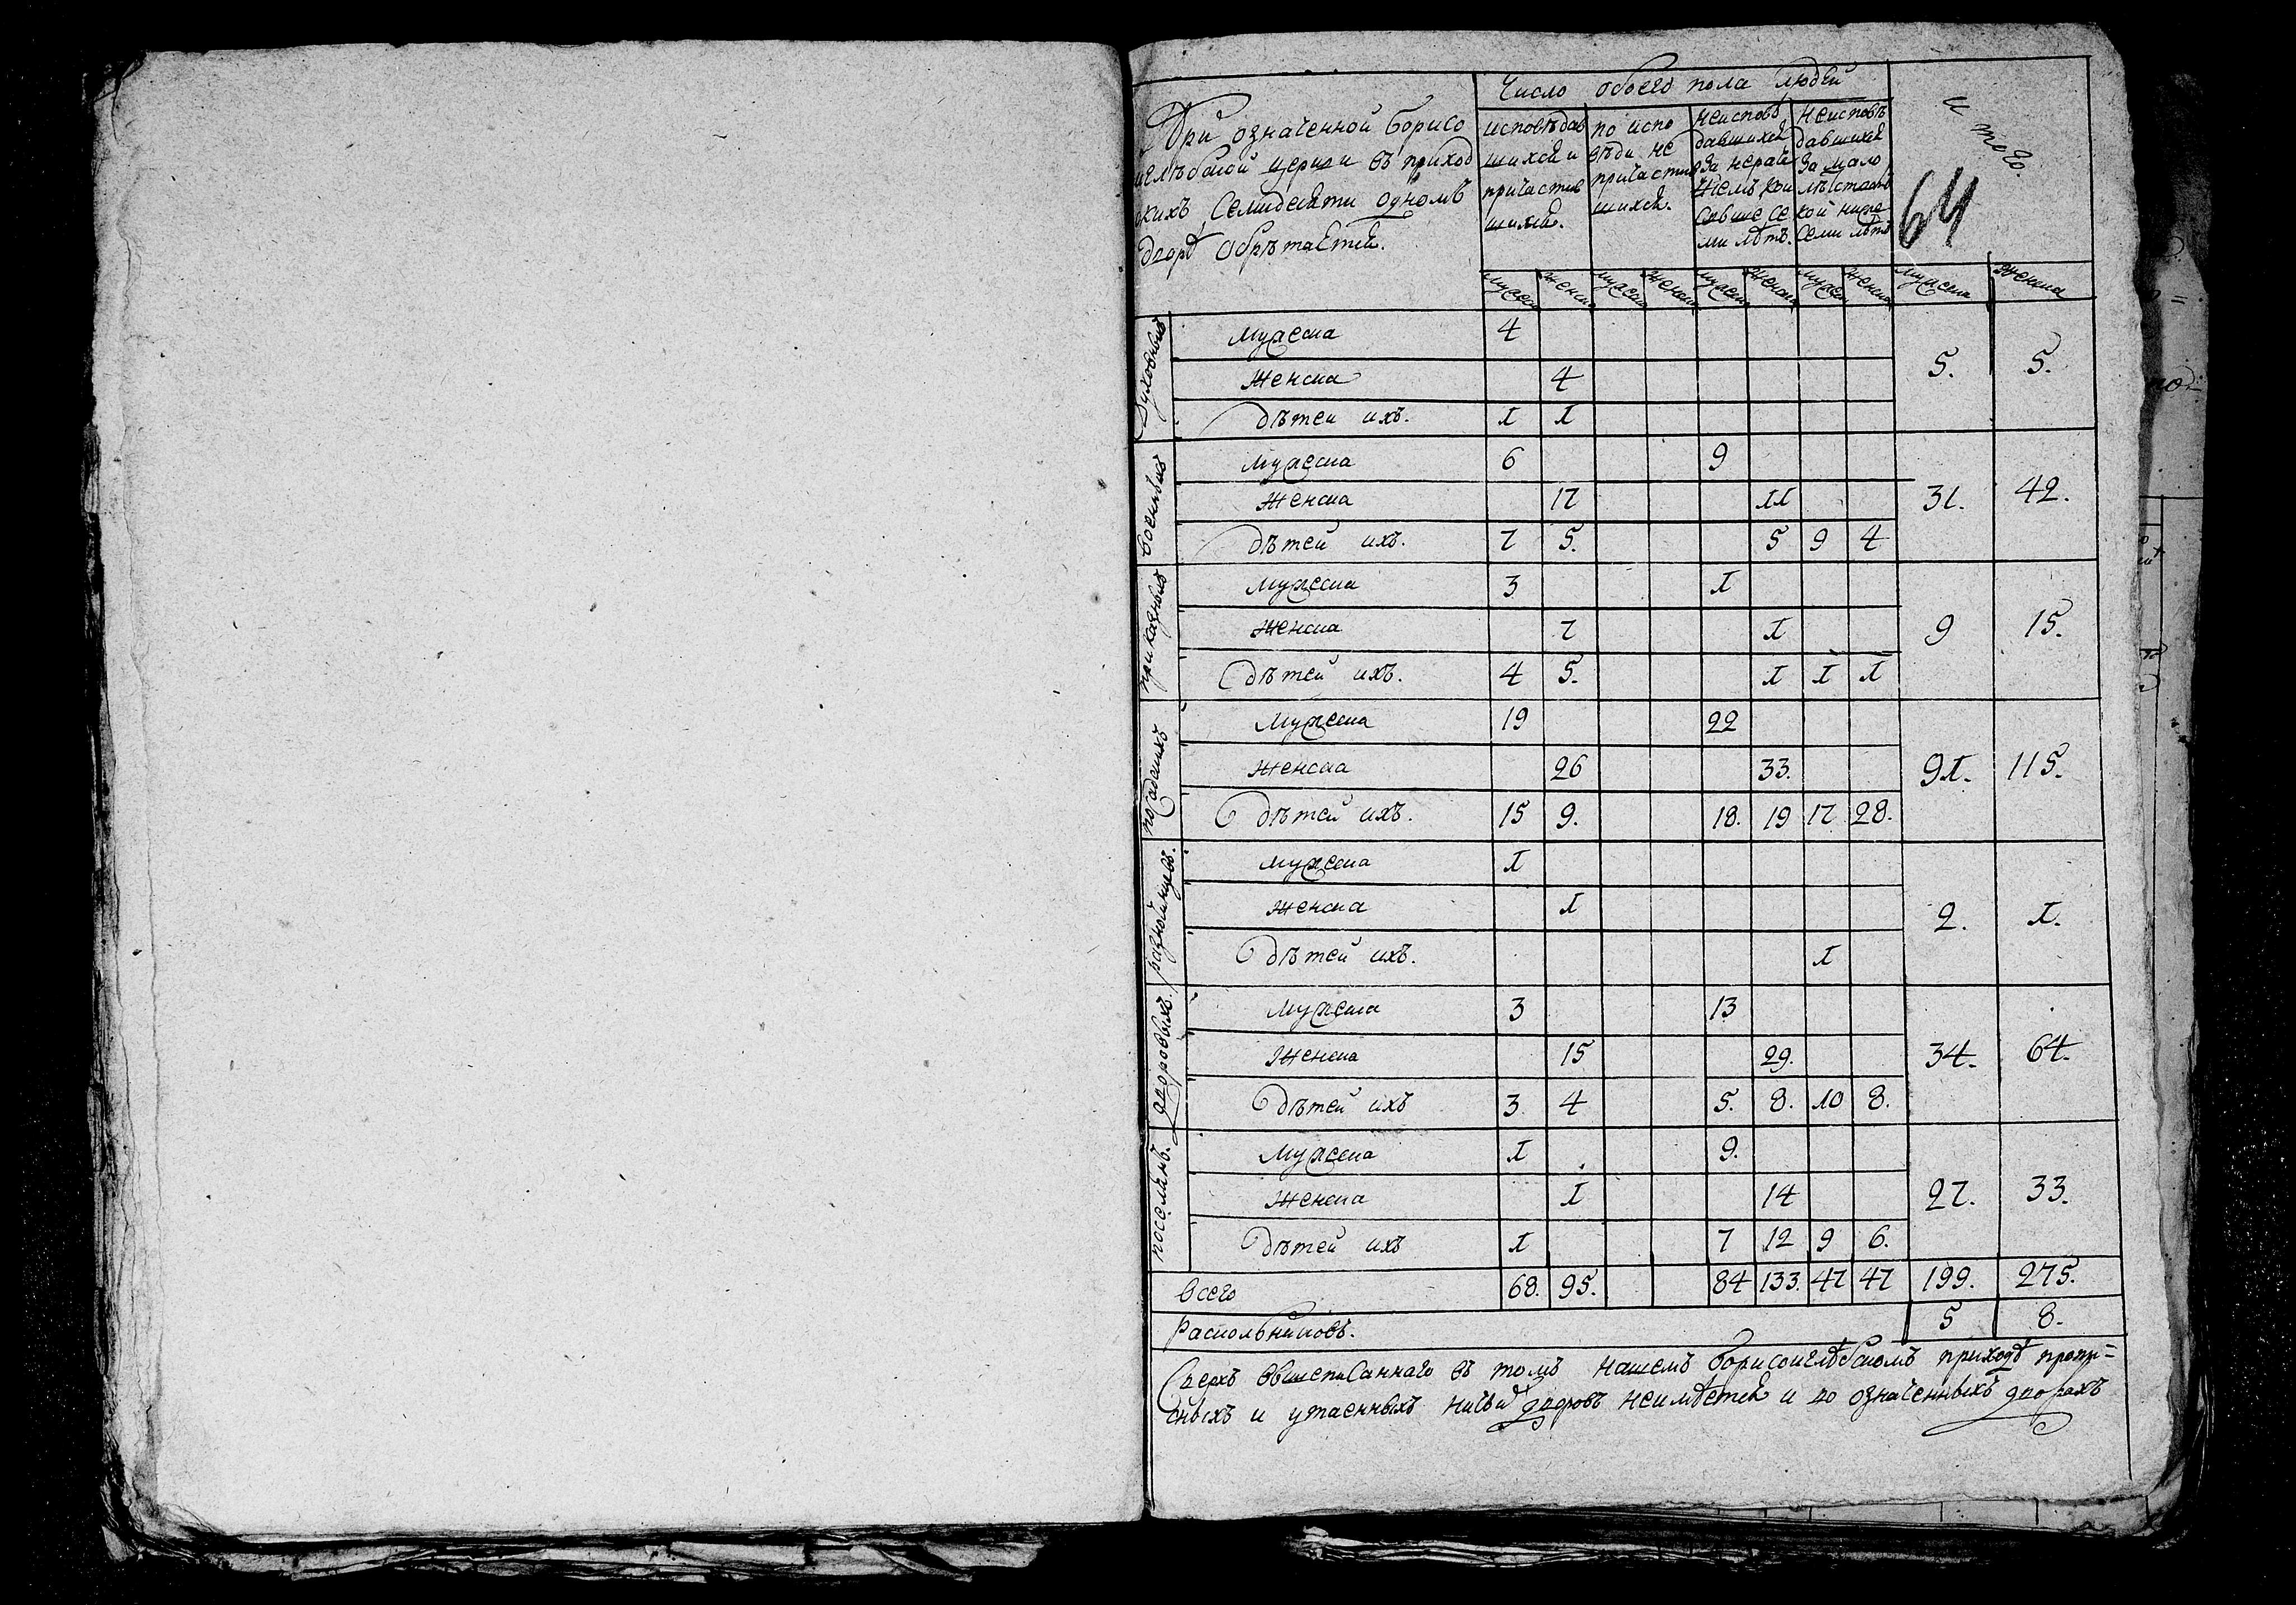 Число обоего пола людей
При означенной Борисо
глѣбской церкви въ приход
скихъ Семидесяти одномъ
дворѣ обрѣтается.
исповѣдав
шихся и
причастив
шихся.
по испо
вѣди не
причастив
шихся.
неисповѣ
давшихся
за нерадѣ
ніемъ кои
свыше се
ми лѣтъ.
неисповѣ
давшихся
за мало
лѣтствомъ
кои ниже
семи лѣтъ
итого.
64
мужска женска мужска женска мужска женска мужска женска мужска женска
Духовныхъ
мужска 4
женска 4 5. 5.
дѣтей ихъ. I I
военныхъ
мужска 6 9
женска 17 II 31. 42.
дѣтей ихъ. 7 5. 5 9 4
приказныхъ
мужска 3 I
женска 7 I 9 15.
дѣтей ихъ. 4 5. I I I
посадскихъ
мужска 19 22
женска 26 33. 9I. 115.
дѣтей ихъ. 15 9. 18. 19 17 28.
разночинцевъ.
мужска I
женска I 2. I.
дѣтей ихъ. I
дворовыхъ.
мужска 3 13
женска 15 29. 34. 64.
дѣтей ихъ 3 4 5. 8. 10 8.
поселянъ.
мужска I 9.
женска I 14 27. 33.
дѣтей ихъ I 7 12 9 6.
всего 68. 95. 84 133. 47 47 199. 275.
Раскольниковъ. 5 8.
Сверхъ вышеписаннаго въ томъ нашемъ Борисоглѣбскомъ приходѣ пропи=
сныхъ и утаенныхъ ничьи дворовъ неимѣется и во означенныхъ дворахъ